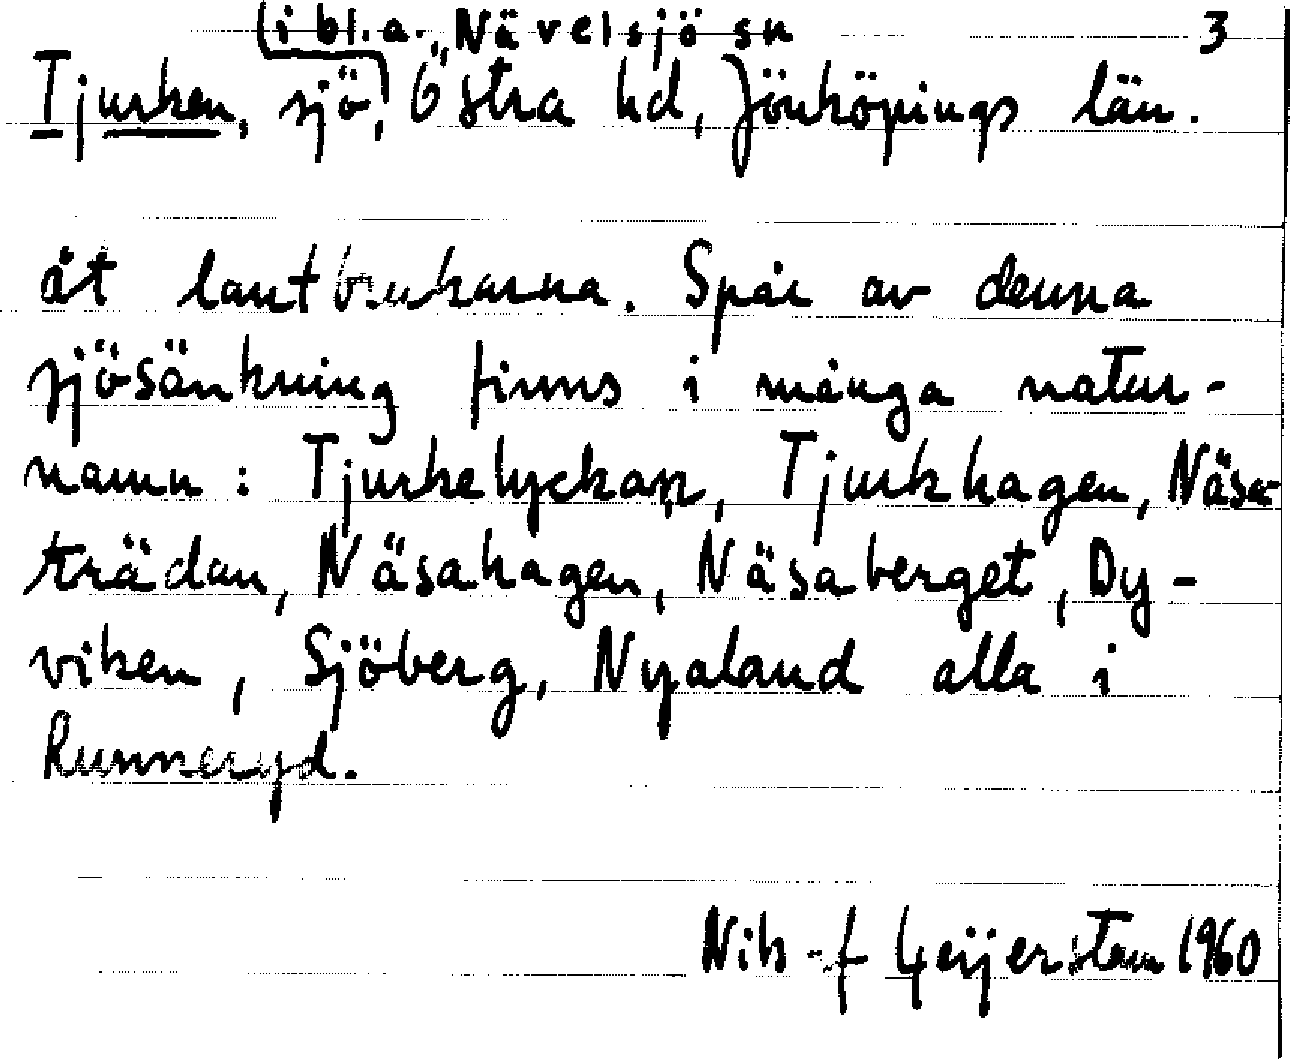 (i bl.a. Nävelsjö sn 3
Tjurken, sjö, Östra hd, Jönköpings län.
åt lantbrukarna. Spår av denna
sjösänkning finns i många natur-
namn: Tjurkelyckan, Tjurkhagen, Näsa-
trädan, Näsahagen, Näsaberget, Dy-
viken, Sjöberg, Nyaland alla i
Runneryd.
Geijerstam 1960